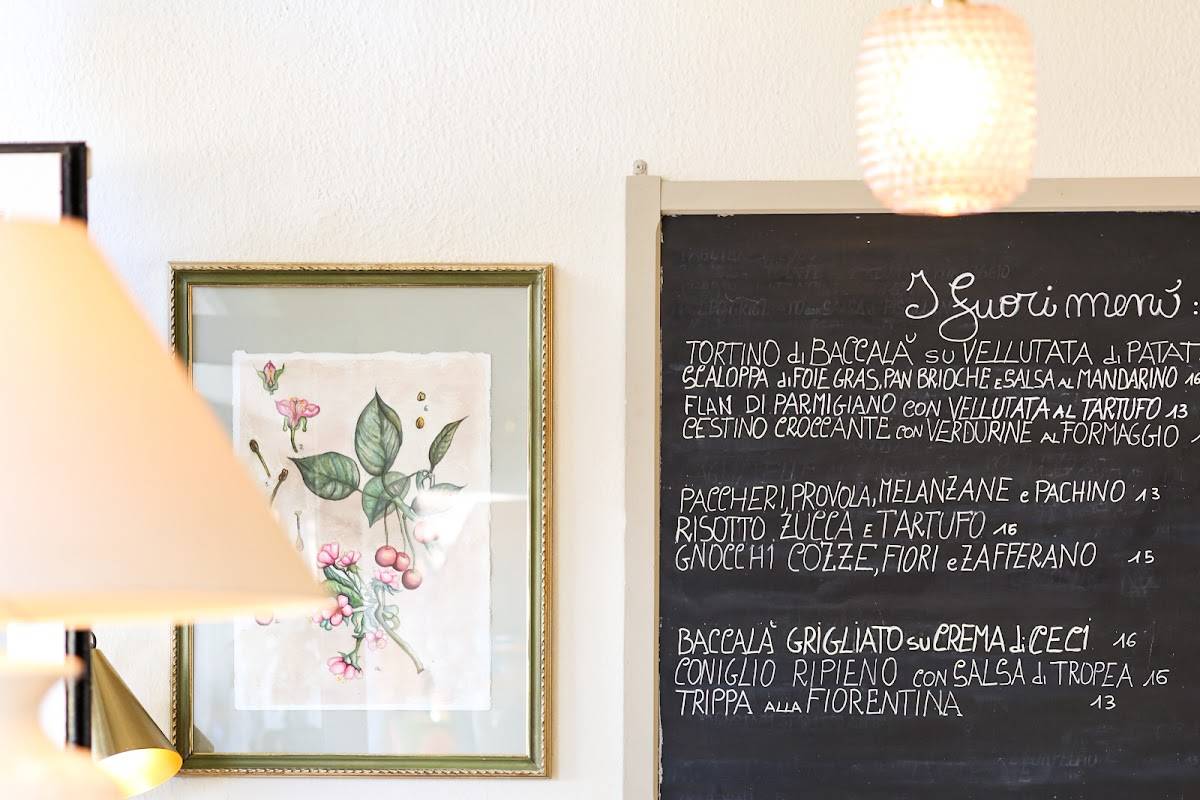 I Fuori menú :
TORTINO di BACCALÀ su VELLUTATA di PATAT
SCALOPPA di FOIE GRAS, PAN BRIOCHE e SALSA AL MANDARINO 16
FLAN DI PARMIGIANO CON VELLUTATA AL TARTUFO 13
CESTINO CROCCANTE CON VERDURINE AL FORMAGGIO
PACCHERI, PROVOLA, MELANZANE e PACHINO 13
RISOTTO ZUCCA E TARTUFO 16
GNOCCHI COZZE, FIORI e ZAFFERANO 15
BACCALÀ GRIGLIATO SU CREMA di CECI 16
CONIGLIO RIPIENO CON SALSA di TROPEA 16
TRIPPA ALLA FIORENTINA 13